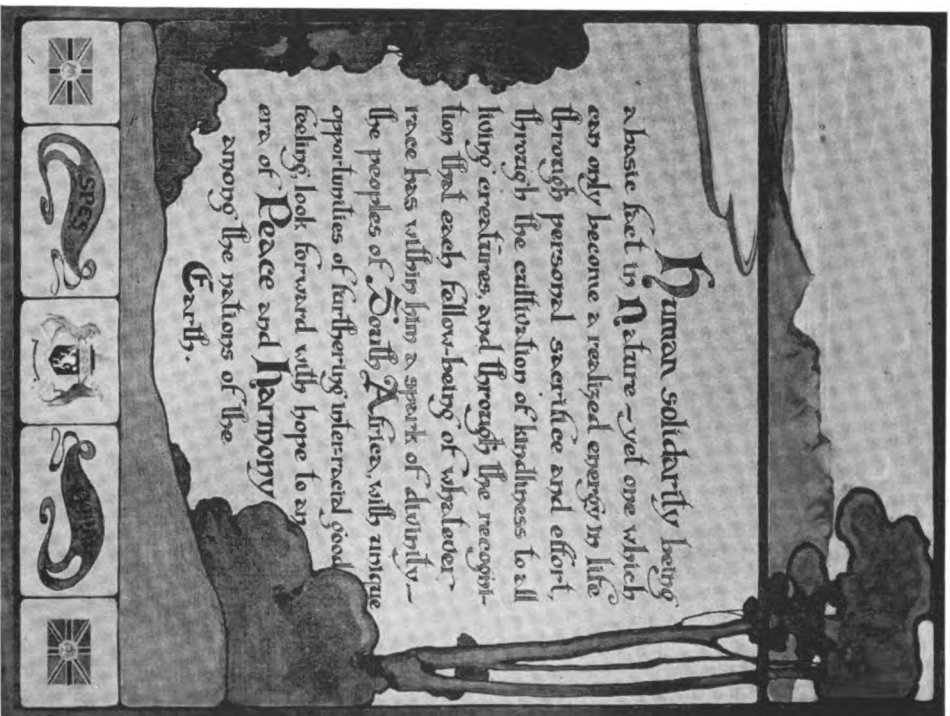 Human solidarity being
a basic fact in Nature – yet one which
can only become a realized energy in life
through personal sacrifice and effort,
through the cultivation of kindliness to all
living creatures, and through the recogni-
tion that each fellow-being of whatever
race has within him a spark of divinity –
the peoples of South Africa, with unique
opportunities of furthering inter-racial good
feeling, look forward with hope to an
era of Peace and Harmony
among the nations of the
Earth.
SPES